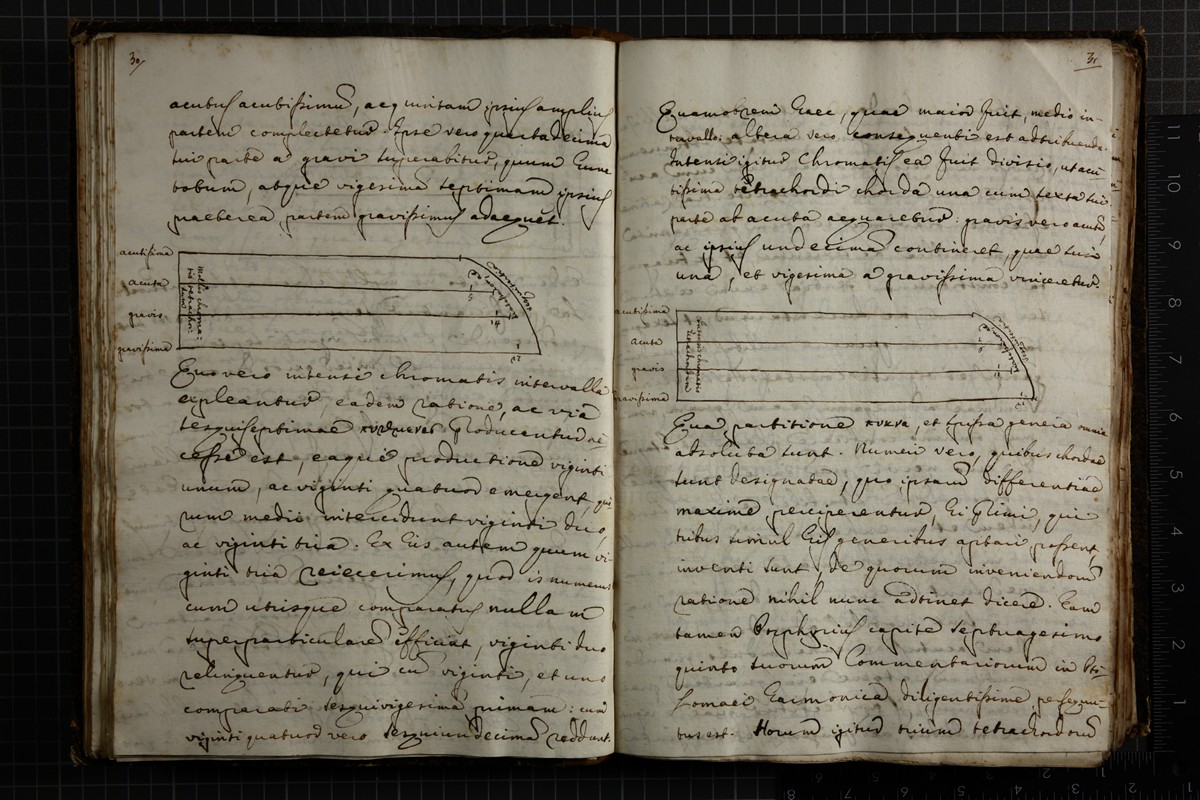 30
acutus acutissimum, ac quintam ipsius amplius
partem complectetur. Ipse vero quartadecima
sui parte a gravi superabitur, quum hunc
totum, atque vigesimam septimam ipsius
praeterea partem gravissimus adaequet.
acutissima
acuta
gravis
gravissima
Mollis chroma:
tis tetrachor:
dum
5
14
27
Quo vero intensi chromatis intervalla
expleantur, eadem ratione, ac via
sesquiseptimae πυθμενες producentur ne
cesse est, eaque productione viginti
unum, ac viginti quatuor emergent, quo
rum medii intercidunt viginti duo,
ac viginti tria. Ex his autem quum vi
ginti tria reiecerimus, quod is numerus
cum utrisque comparatus nullam
superparticularem efficiat, viginti duo
relinquentur, qui cum viginti, et uno
comparati sesquivigesimam primam: cum
viginti quatuor vero sesquiundecimam reddunt.
31
Quamobrem haec, quae maior fuit, medio in-
tervallo: altera vero consequenti est adtribuenda.
Intensi igitur Chromatis ea fuit divisio, ut acu
tissima tetrachordi chorda una cum sexta sui
parte ab acuta aequaretur: gravis vero acutam,
ac ipsius undecimam contineret, quae sui
una, et vigesima a gravissima vinceretur.
acutissima
acuta
gravis
gravissima
intensi chromatis
tetrachordum
6
11
21
Qua partitione πυκνα, et spissa genera
absoluta sunt. Numeri vero, quibus chordae
sunt designatae, quo ipsarum differentiae
maxime perciperentur, hi primi, qui
tribus simul his generibus aptari possent,
inventi sunt, de quorum inveniendorum
ratione nihil nunc adtinet dicere. Eam
tamen Porphyrius capite septuagesimo
quinto suorum Commentariorum in Pto
lomaei harmonica diligentissime persequu-
tus est. Horum igitur trium tetrachordorum